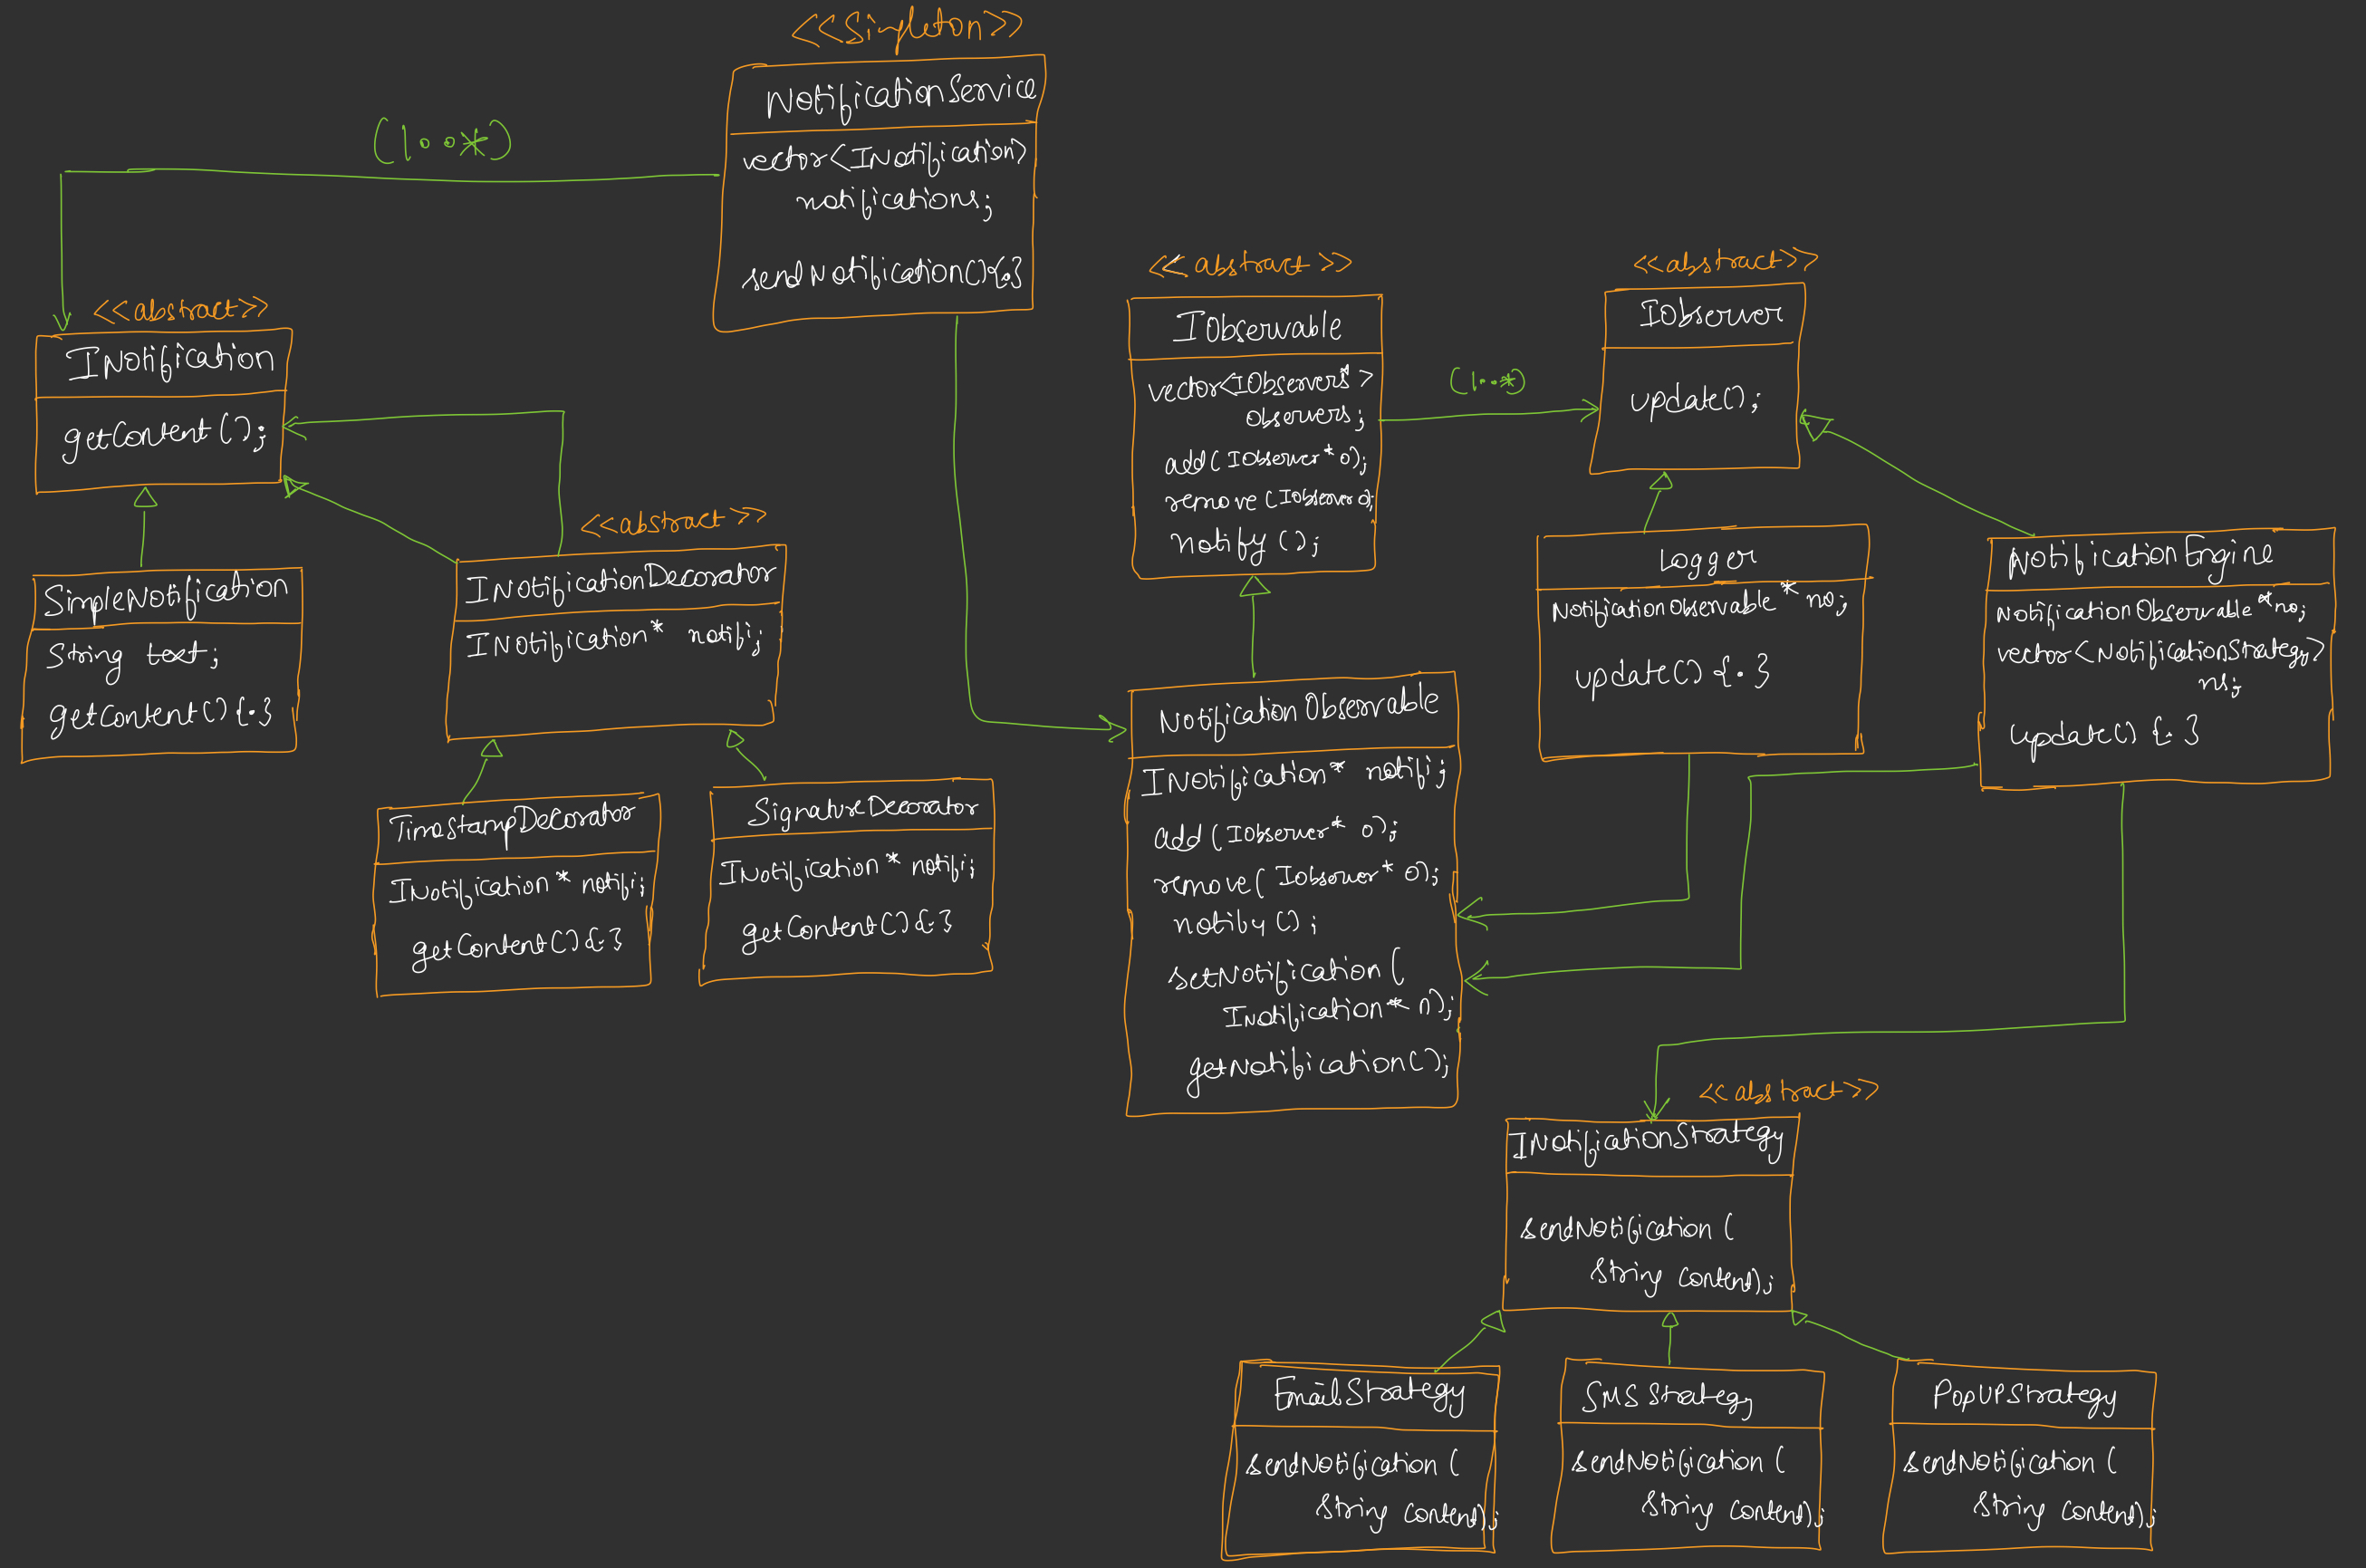 <<Singleton>>
NotificationService
vector<INotification>
notifications;
sendNotification(){.}
(1..*)
<<abstract>>
INotification
getContent();
SimpleNotification
String text;
getContent(){.}
<<abstract>>
INotificationDecorator
INotification* notifi;
TimeStampDecorator
INotification* notifi;
getContent(){.}
SignatureDecorator
INotification* notifi;
getContent(){.}
<<abstract>>
IObservable
vector<IObservers*>
observers;
add(IObserver* o);
remove(IObserver o);
notify();
(1..*)
<<abstract>>
IObserver
update();
Logger
NotificationObservable* no;
update(){.}
NotificationEngine
NotificationObservable* no;
vector<NotificationStrategy>
ns;
update(){.}
NotificationObservable
INotification* notifi;
add(IObserver* o);
remove(IObserver* o);
notify();
setNotification(
INotification* n);
getNotification();
<<abstract>>
INotificationStrategy
sendNotification(
String content);
EmailStrategy
sendNotification(
String content);
SMSStrategy
sendNotification(
String content);
PopUPStrategy
sendNotification(
String content);